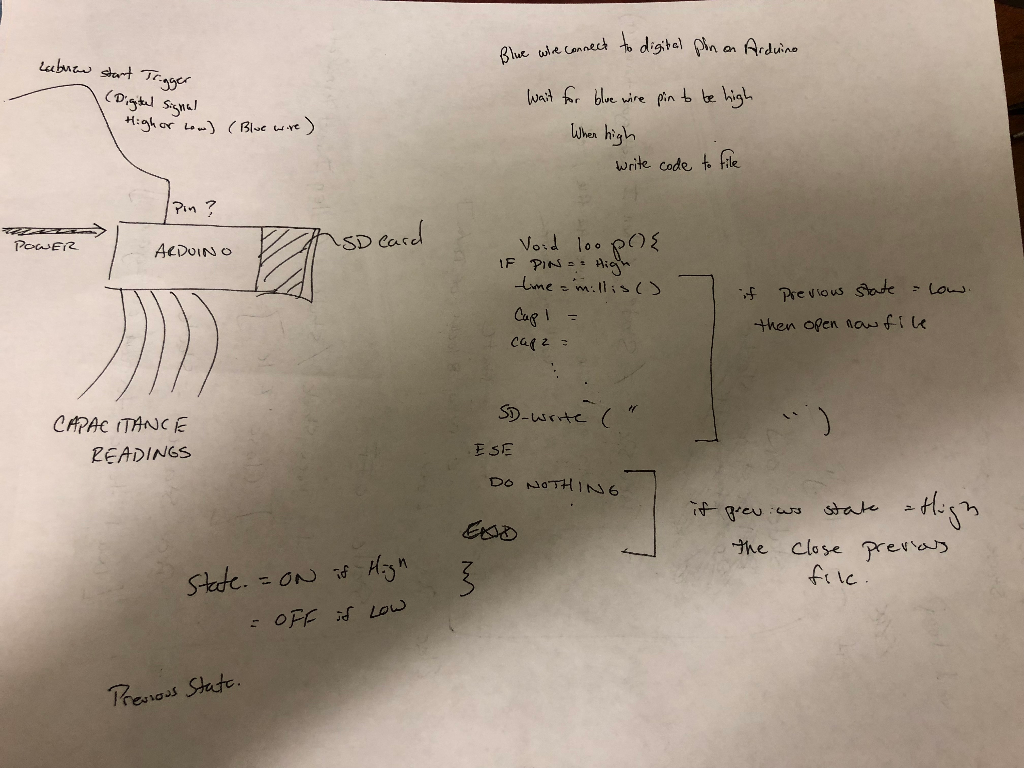 Labview start Trigger
(Digital Signal
High or Low) (Blue wire)
Pin ?
POWER
ARDUINO
SD card
CAPACITANCE
READINGS
Blue wire connect to digital pin on Arduino
Wait for blue wire pin to be high
When high
write code to file
Void loop(){
IF PIN == High
time = millis()
Cap 1 =
cap 2 =
SD-write ( " " )
if Previous state = Low.
then open new file
ESE
DO NOTHING
END
}
if previous state = High
the close previous
file.
State. = ON if High
= OFF if LOW
Previous State.